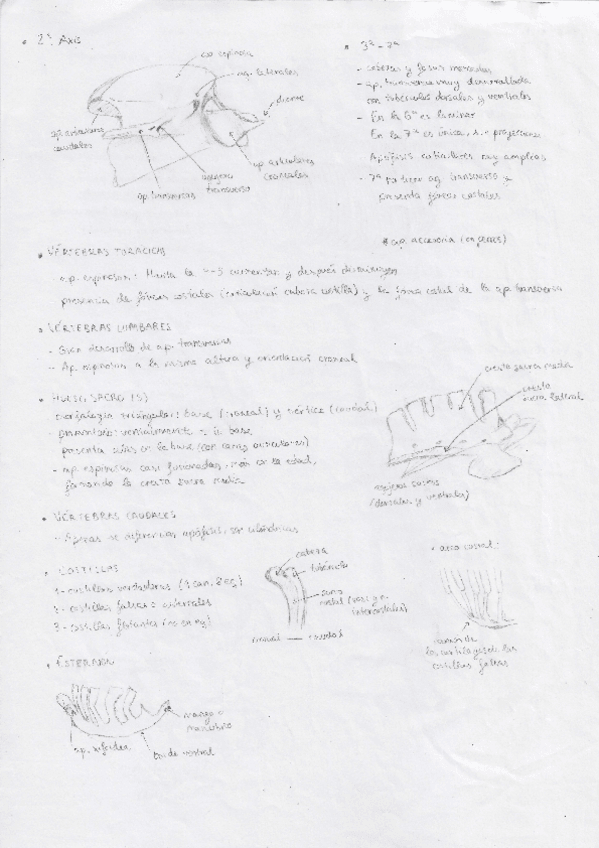 2ª Axis
ap. espinosa
ag. laterales
diente
ap. articulares
caudales
ap. transversas
agujero
transverso
ap. articulares
craneales
3ª - 7ª
- cabezas y fosas
- ap. transversa muy desarrollada
con tubérculos dorsales y ventrales
- En la 6ª es laminar
En la 7ª es única,
Apófisis articulares muy amplias
- 7ª ag. transverso y
presenta fóveas costales
* ap. accesoria (en perro)
• VÉRTEBRAS TORÁCICAS
- ap. espinosas: Hasta la 4-5 aumentan y después disminuyen
presencia de fóveas costales (articulación cabeza costilla) y la fóvea costal de la ap. transversa
• VÉRTEBRAS LUMBARES
- Gran desarrollo de ap. transversas
- Ap. espinosas a la misma altura y orientación craneal
• HUESO SACRO (S)
- morfología triangular: base (craneal) y vértice (caudal)
- promontorio: ventralmente a la base
presenta alas en la base (con caras auriculares)
- ap. espinosas casi fusionadas, más en la edad,
formando la cresta sacra media
cresta sacra media
cresta
sacra lateral
agujeros sacros
(dorsales y ventrales)
• VÉRTEBRAS CAUDALES
- Apenas se diferencian apófisis, son cilíndricas
• COSTILLAS
1- costillas verdaderas
2- costillas falsas o asternales
3- costillas flotantes (no en eq)
cabeza
tubérculo
craneal — caudal
• arco costal:
los cartílagos de las
costillas falsas
• ESTERNÓN
mango o
manubrio
ap. xifoidea
borde ventral